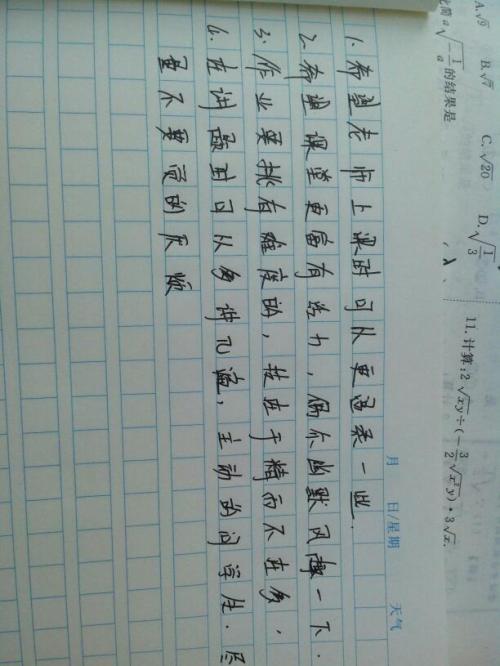 A.√9 B.√7 C.√20 D.√(1/3)
a√(-1/a)的结果是
11. 计算:2√xy÷(-3/2√x²y)·3√x.
月 日/星期 天气
1. 希望老师上课时可以更温柔一些.
2. 希望课堂更富有活力，偶尔幽默风趣一下.
3. 作业要挑有难度的，技在于精而不在多.
4. 在讲题时可以多讲几遍，主动的问学生.尽
量不要觉的厌烦